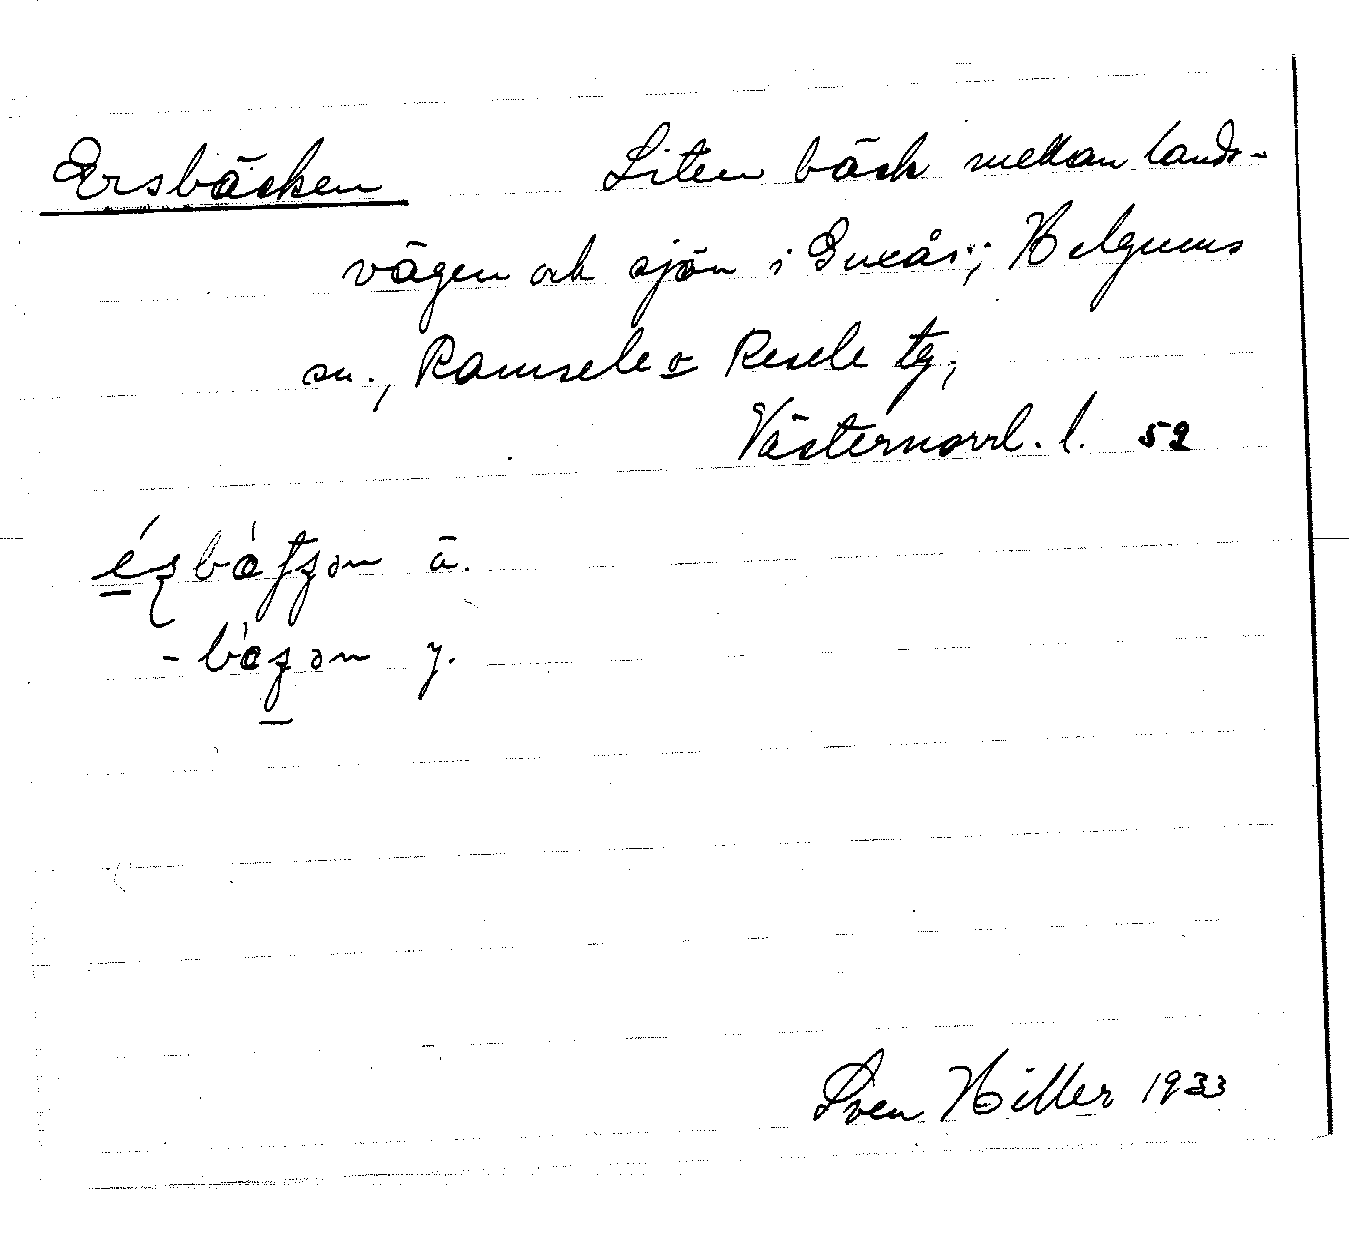 Ersbäcken Liten bäck mellan lands-
vägen och sjön i Guxås; Helgums
sn., Ramsele o Resele tg,
Västernorrl. l. 52
ä.
y.
Sven Hiller 1933